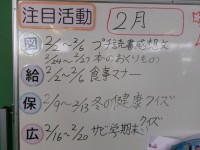 注目活動
2月
図 2/2~2/6 プチ読書感想文
2/24~2/27 本のおくりもの
給 2/2~2/6 食事マナー
保 2/9~2/13 冬の健康クイズ
広 2/16~2/20 サビ学期末クイズ